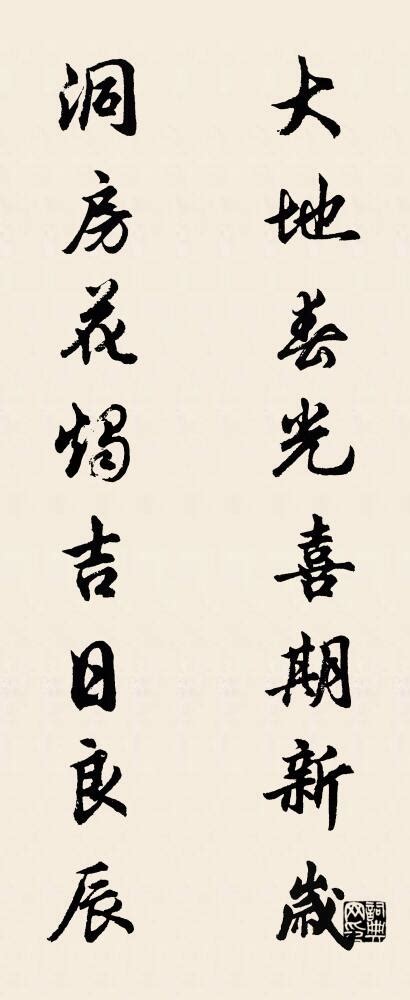 大地春光喜期新歲
洞房花燭吉日良辰